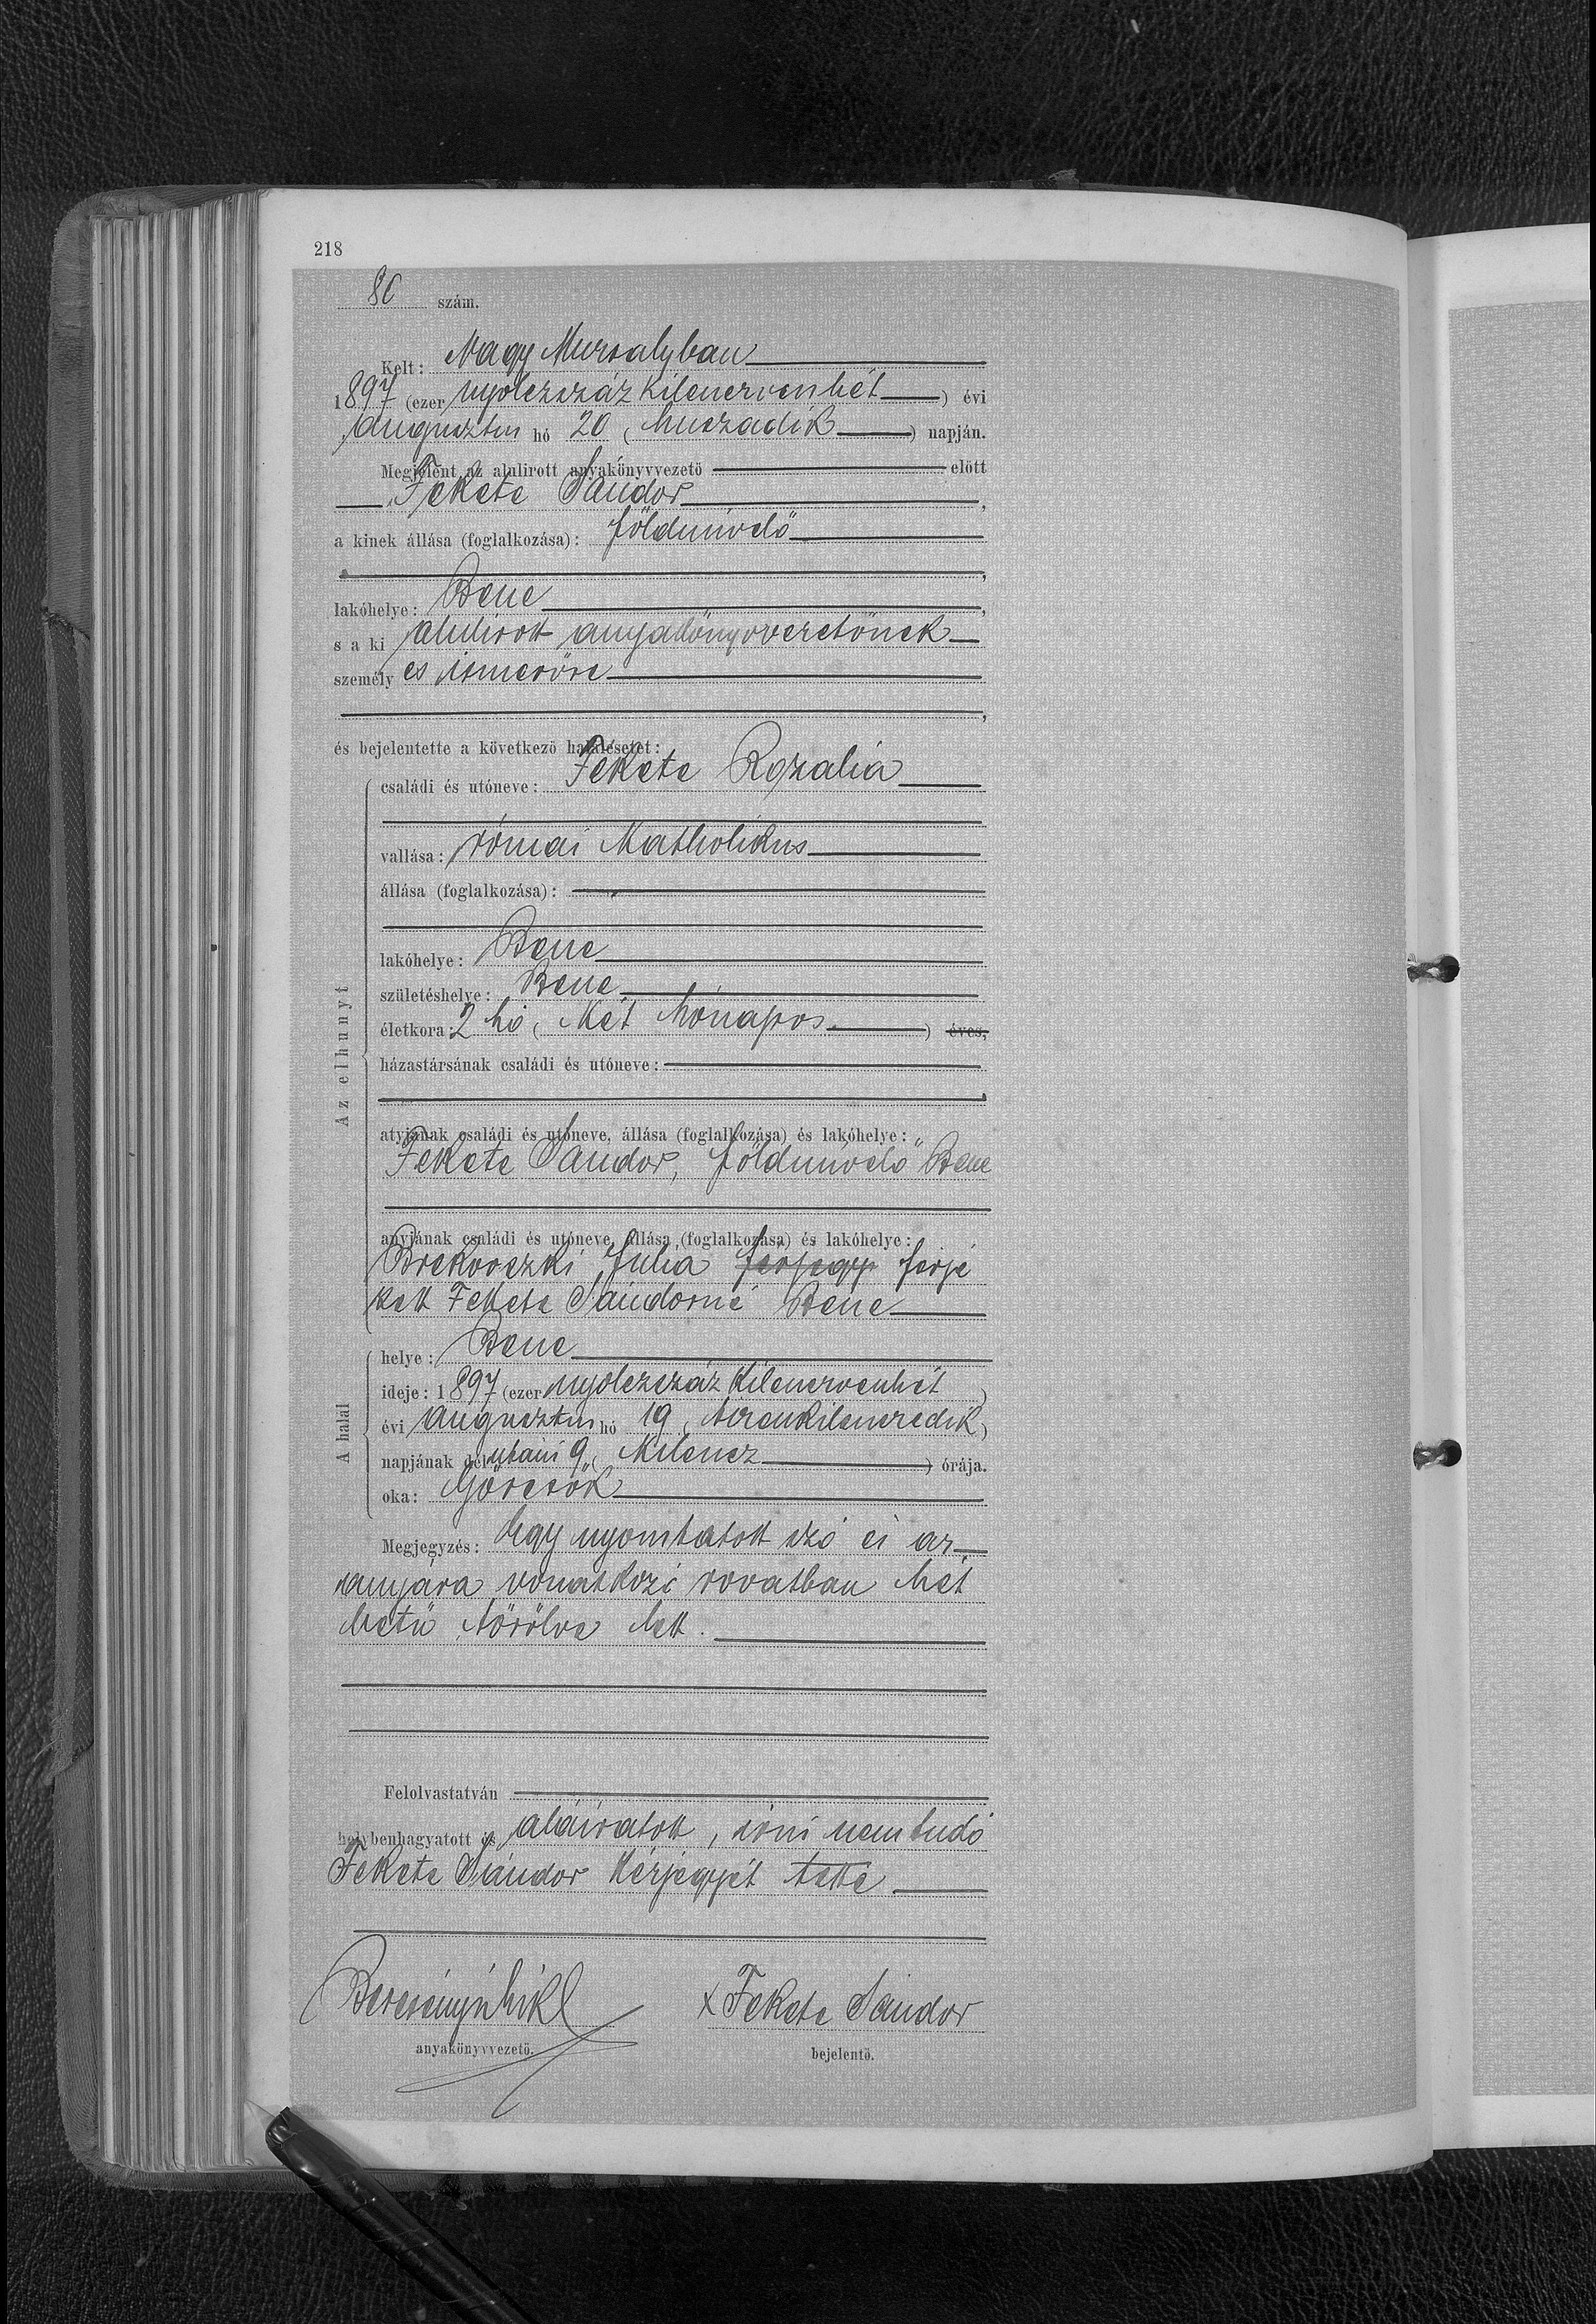 218
80 szám.
Kelt: Nagy Muzsalyban
1897 (ezer nyolczszáz kilenczvenhét) évi
augusztus hó 20 (huszadik) napján.
Megjelent az alulirott anyakönyvvezető előtt
Fekete Sándor,
a kinek állása (foglalkozása): földmívelő
,
lakóhelye: Bene,
s a ki alulírott anyakönyvvezetőnek
személyes ismerőse
,
és bejelentette a következő halálesetet:
családi és utóneve: Fekete Rozália
vallása: római katholikus
állása (foglalkozása):
lakóhelye: Bene
születéshelye: Bene
életkora: 2 hó (két hónapos) éves,
házastársának családi és utóneve:
atyjának családi és utóneve, állása (foglalkozása) és lakóhelye:
Fekete Sándor, földmívelő Bene
anyjának családi és utóneve, állása (foglalkozása) és lakóhelye:
Julia férjegy férje
zett Fekete Sándorné Bene
Az elhunyt
helye: Bene
ideje: 1897 (ezer nyolczszáz kilenczvenhét)
évi augusztus hó 19 (tizenkilenczedik)
napjának délutáni 9 (kilencz) órája.
oka: Görcsök
A halál
Megjegyzés: Egy nyomtatott szó és az
anyjára vonatkozó rovatban hét
betü törölve lett.
Felolvastatván
helybenhagyatott és aláíratott, írni nem tudó
Fekete Sándor kézjegyét tette
x Fekete Sándor
anyakönyvvezető.
bejelentő.